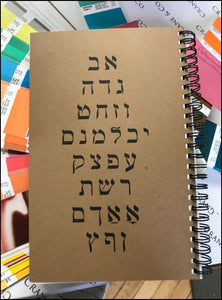 אב
גדה
וזחט
יכלמנס
עפצק
רשת
אָאַךם
ןףץ